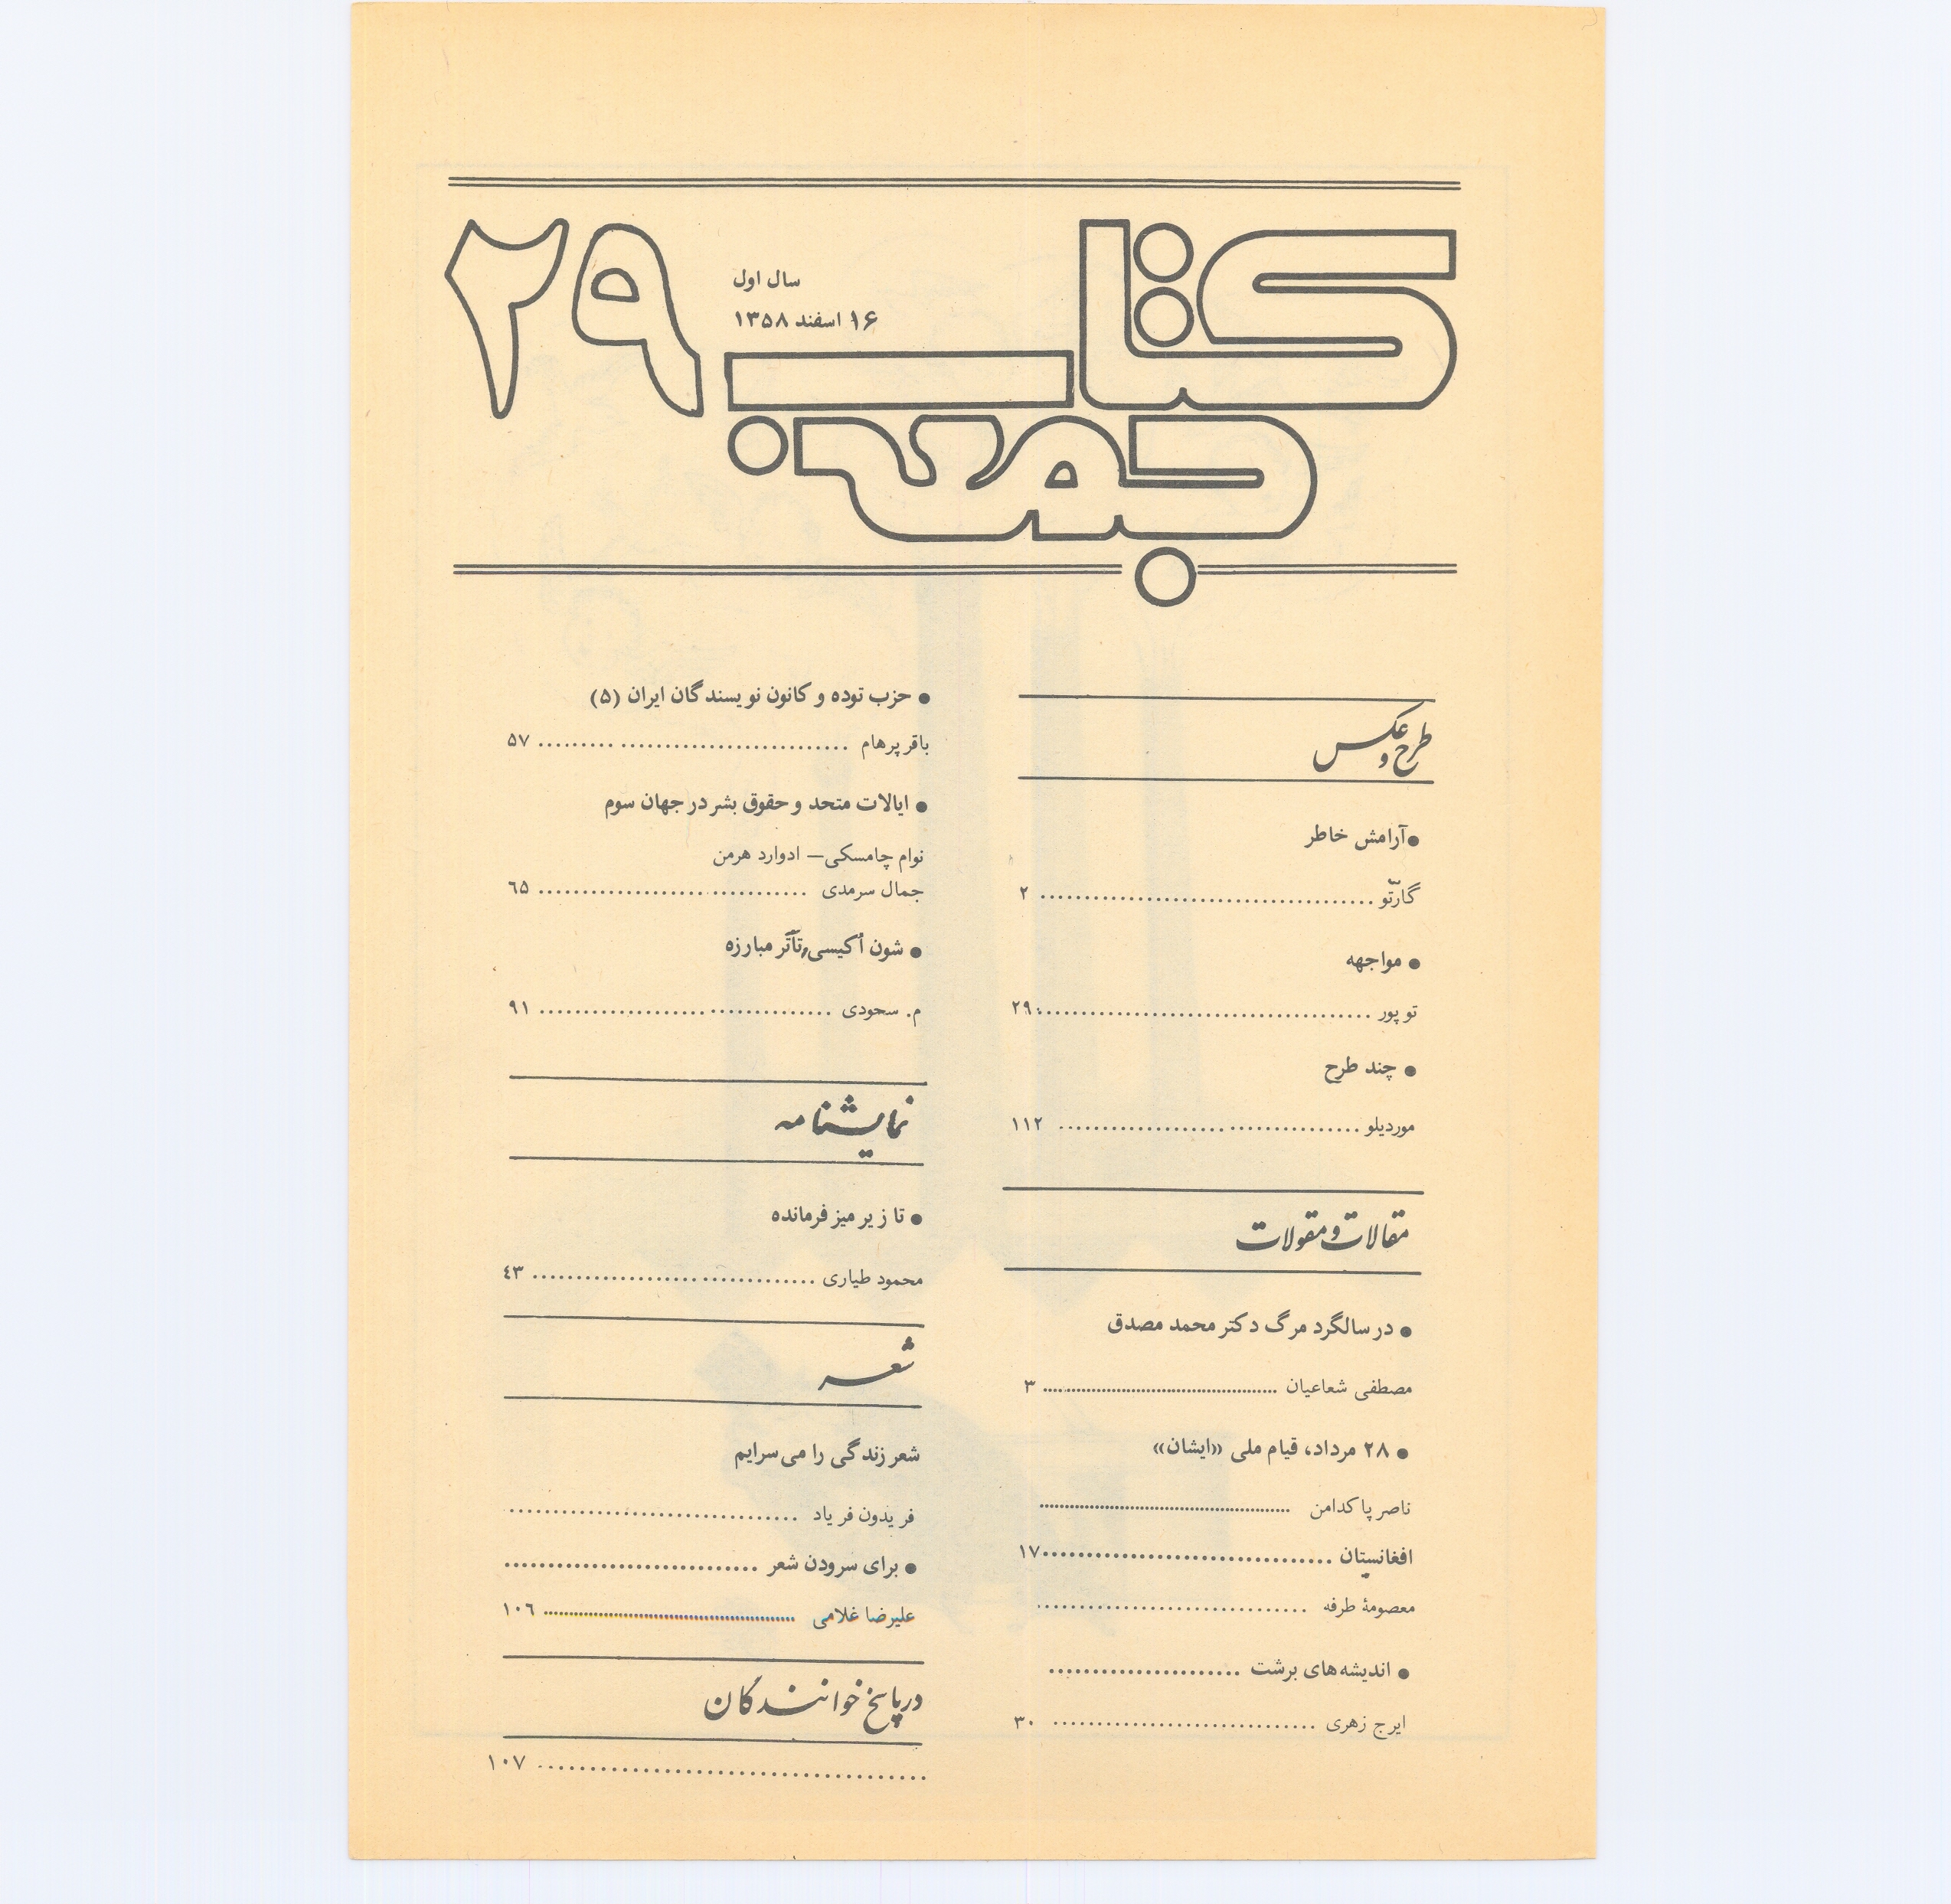 کتاب
جمعه
۲۹
سال اول
۱۶ اسفند ۱۳۵۸
طرح و عکس
● آرامش خاطر
گارتّو ........................................ ۲
● مواجهه
توپور ........................................ ۲۹
● چند طرح
موردیلو ........................................ ۱۱۲
مقالات و مقولات
● در سالگرد مرگ دکتر محمد مصدق
مصطفی شعاعیان ........................................ ۳
● ۲۸ مرداد، قیام ملی «ایشان»
ناصر پاکدامن ........................................
افغانستان ........................................ ۱۷
معصومهٔ طرفه ........................................
● اندیشه‌های برشت ........................................
ایرج زهری ........................................ ۳۰
● حزب توده و کانون نویسندگان ایران (۵)
باقر پرهام ........................................ ۵۷
● ایالات متحد و حقوق بشر در جهان سوم
نوام چامسکی — ادوارد هرمن
جمال سرمدی ........................................ ۶۵
● شون اُکیسی، تآتر مبارزه
م. سحودی ........................................ ۹۱
نمایشنامه
● تا زیر میز فرمانده
محمود طیاری ........................................ ۴۳
شعر
شعر زندگی را می‌سرایم
فریدون فریاد ........................................
● برای سرودن شعر ........................................
علیرضا غلامی ........................................ ۱۰۶
در پاسخ خوانندگان
........................................ ۱۰۷